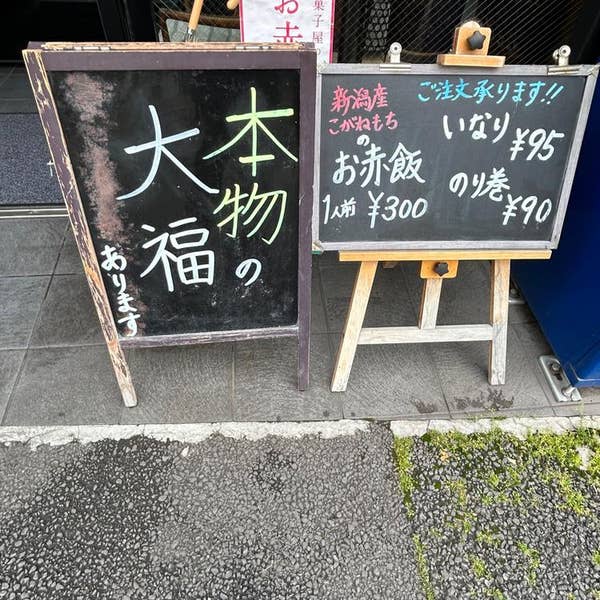 本物の
大福
あります
菓子屋の
お赤
新潟産
こがねもち
の
お赤飯
1人前 ¥300
ご注文承ります!!
いなり
¥95
のり巻
¥90